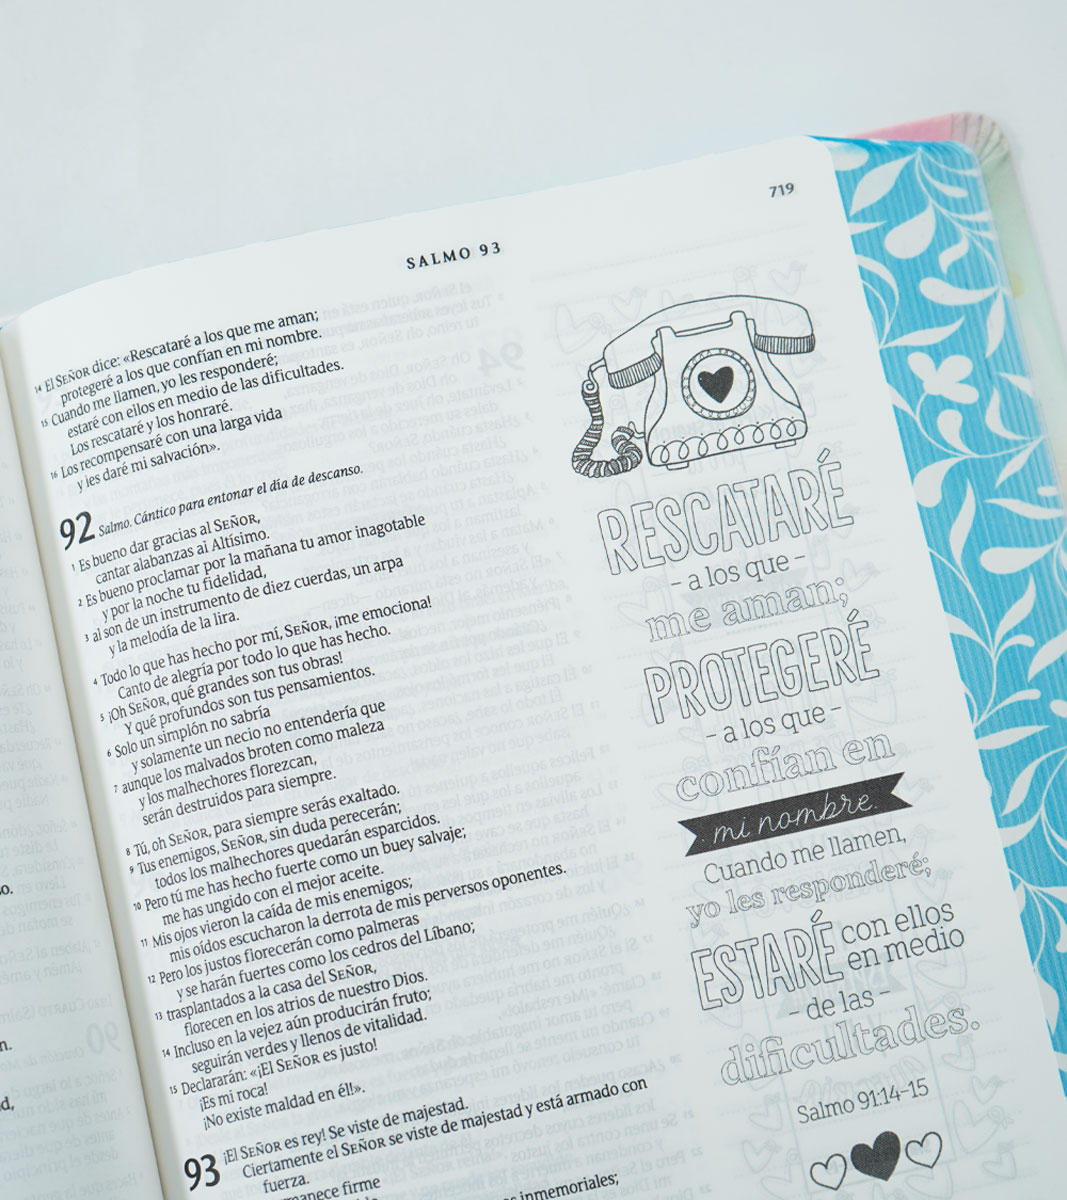 719
SALMO 93
14 El SEÑOR dice: «Rescataré a los que me aman;
protegeré a los que confían en mi nombre.
15 Cuando me llamen, yo les responderé;
estaré con ellos en medio de las dificultades.
Los rescataré y los honraré.
16 Los recompensaré con una larga vida
y les daré mi salvación».
92 Salmo. Cántico para entonar el día de descanso.
1 Es bueno dar gracias al SEÑOR,
cantar alabanzas al Altísimo.
2 Es bueno proclamar por la mañana tu amor inagotable
y por la noche tu fidelidad,
3 al son de un instrumento de diez cuerdas, un arpa
y la melodía de la lira.
4 Todo lo que has hecho por mí, SEÑOR, ¡me emociona!
Canto de alegría por todo lo que has hecho.
5 ¡Oh SEÑOR, qué grandes son tus obras!
Y qué profundos son tus pensamientos.
6 Solo un simplón no sabría
y solamente un necio no entendería que
7 aunque los malvados broten como maleza
y los malhechores florezcan,
serán destruidos para siempre.
8 Tú, oh SEÑOR, para siempre serás exaltado.
9 Tus enemigos, SEÑOR, sin duda perecerán;
todos los malhechores quedarán esparcidos.
10 Pero tú me has hecho fuerte como un buey salvaje;
me has ungido con el mejor aceite.
11 Mis ojos vieron la caída de mis enemigos;
mis oídos escucharon la derrota de mis perversos oponentes.
12 Pero los justos florecerán como palmeras
y se harán fuertes como los cedros del Líbano;
13 trasplantados a la casa del SEÑOR,
florecen en los atrios de nuestro Dios.
14 Incluso en la vejez aún producirán fruto;
seguirán verdes y llenos de vitalidad.
15 Declararán: «¡El SEÑOR es justo!
¡Es mi roca!
¡No existe maldad en él!».
93 ¡El SEÑOR es rey! Se viste de majestad.
Ciertamente el SEÑOR se viste de majestad y está armado con
fuerza.
manece firme
inmemoriales;
RESCATARÉ
– a los que –
me aman;
PROTEGERÉ
– a los que –
confían en
mi nombre.
Cuando me llamen,
yo les responderé;
ESTARÉ con ellos
en medio
– de las –
dificultades.
Salmo 91:14-15